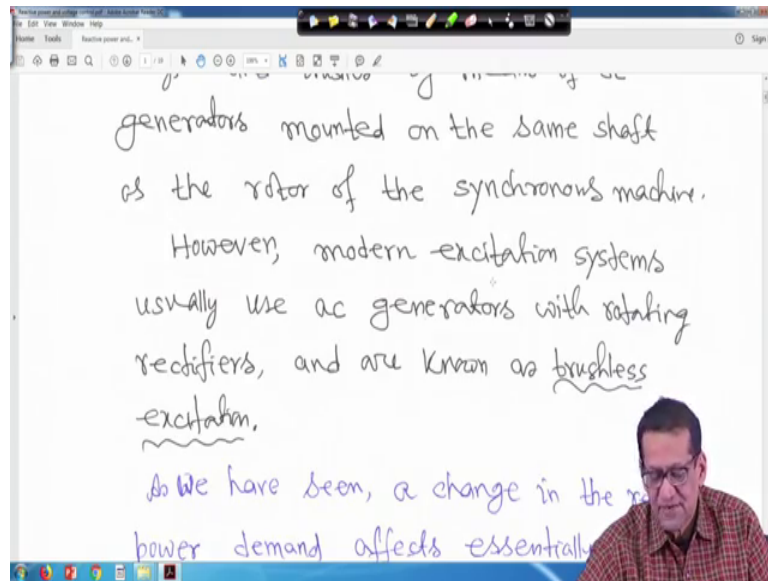 Reactive power and voltage control.pdf - Adobe Acrobat Reader DC
File Edit View Window Help
Home Tools Reactive power and... ×
Sign
generators mounted on the same shaft
as the rotor of the synchronous machine.
However, modern excitation systems
usually use ac generators with rotating
rectifiers, and are known as brushless
excitation.
As we have seen, a change in the
power demand affects essentially